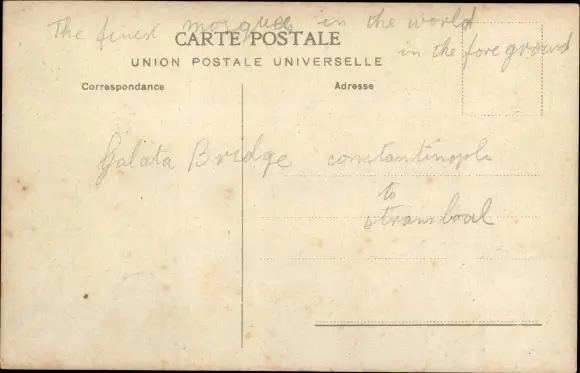 The finest mosque in the world
CARTE POSTALE
in the foreground
UNION POSTALE UNIVERSELLE
Correspondance
Adresse
Galata Bridge constantinople
to